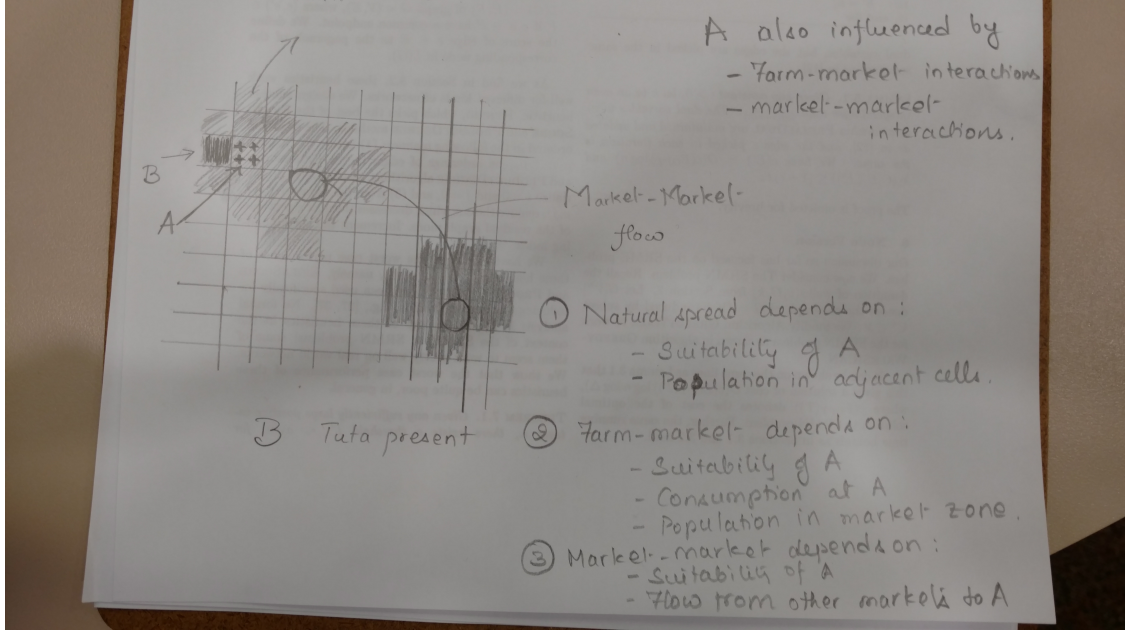 A also influenced by
- Farm-market interactions
- market-market
interactions.
B
A
Market-Market
flow
① Natural spread depends on :
- Suitability of A
- Population in adjacent cells.
B Tuta present
② Farm-market depends on :
- Suitability of A
- Consumption at A
- Population in market zone.
③ Market-market depends on :
- Suitability of A
- Flow from other markets to A